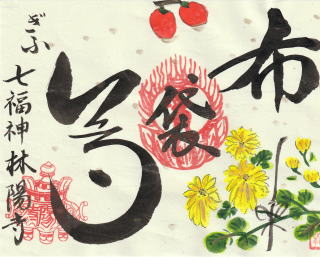 布
袋
尊
ぎふ
七福神林陽寺